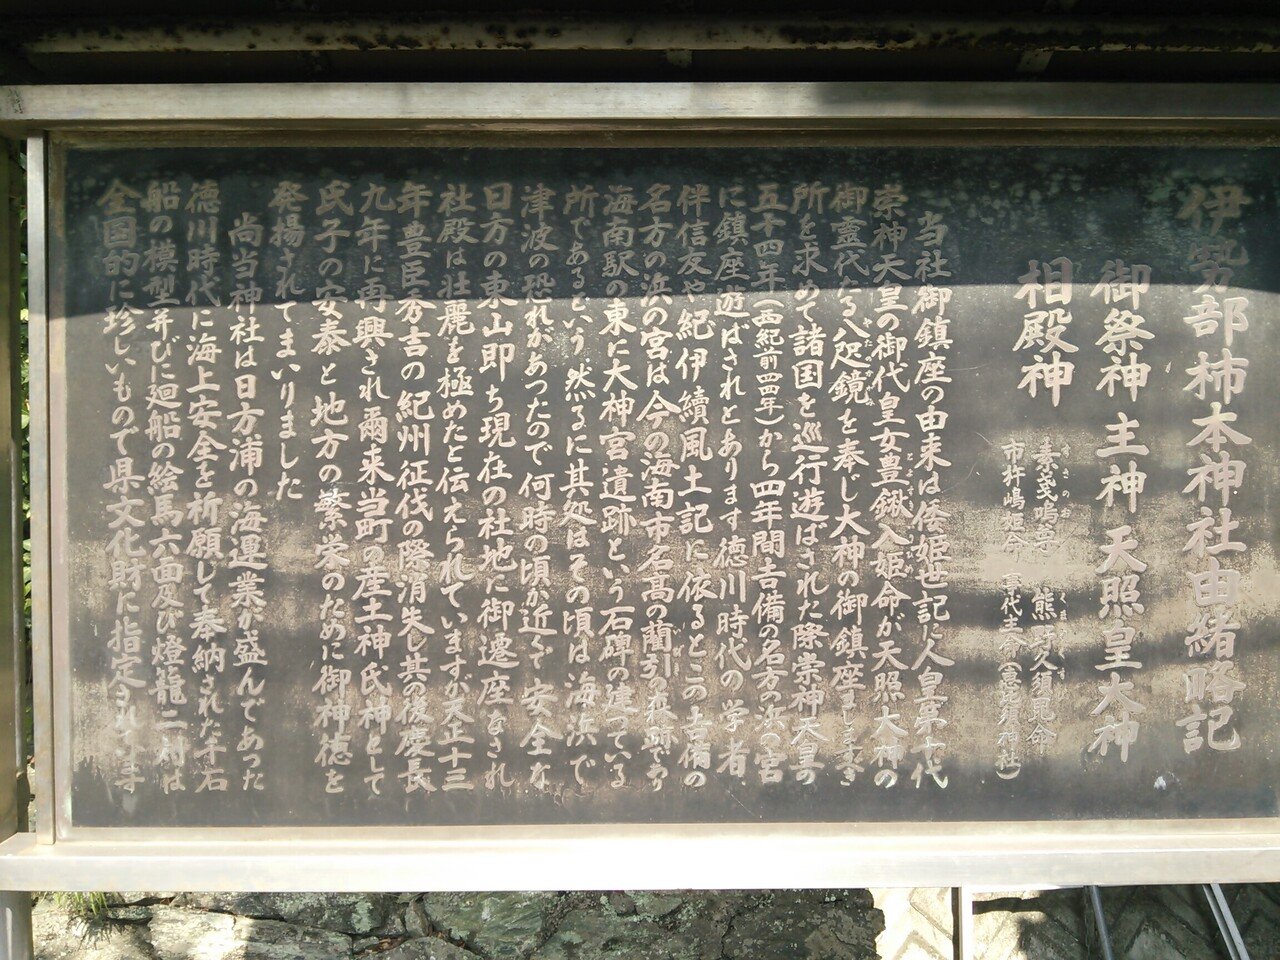 伊勢部柿本神社由緒略記
御祭神 主神 天照皇大神
相殿神
素戔嗚尊 熊野久須毘命
市杵嶋姫命 事代主命(恵比須神社)
当社御鎮座の由来は倭姫世記に人皇第十代
崇神天皇の御代皇女豊鍬入姫命が天照大神の
御霊代なる八咫鏡を奉じ大神の御鎮座ましますき
所を求めて諸国を巡行遊ばされた際崇神天皇の
五十四年(西紀前四四年)から四年間吉備の名方の浜の宮
に鎮座遊ばされとあります徳川時代の学者、
伴信友や紀伊續風土記に依るとこの吉備の
名方の浜の宮は今の海南市名高の藺引の森跡であり
海南駅の東に大神宮遺跡という石碑の建っている
所であるという然るに其処はその頃は海浜で
津波の恐れがあつたので何時の頃か近くで安全な
日方の東山即ち現在の社地に御遷座をされ
社殿は壮麗を極めたと伝えられていますが天正十三
年豊臣秀吉の紀州征伐の際消失し其の後慶長
九年に再興され爾来当町の産土神氏神として
氏子の安泰と地方の繁栄のために御神徳を
発揚されてまいりました
尚当神社は日方浦の海運業が盛んであった
徳川時代に海上安全を祈願して奉納された千石
船の模型并びに廻船の絵馬六面及び燈籠二対は
全国的に珍しいもので県文化財に指定され